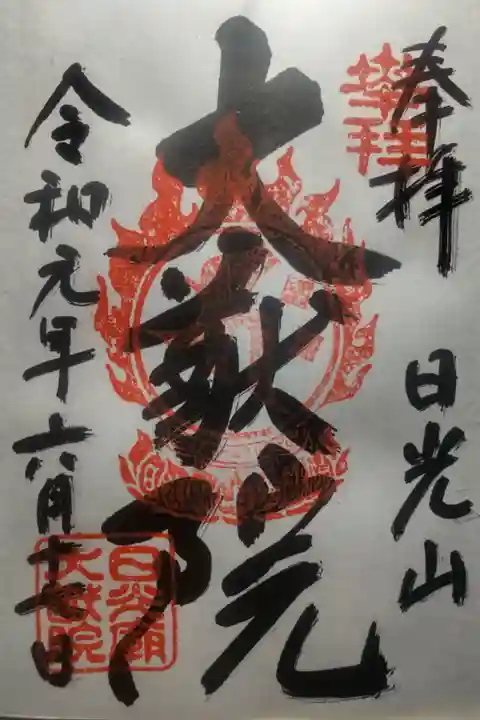 奉拝 日光山
大猷院
令和元年六月十七日
奉拝
日光廟
大猷院